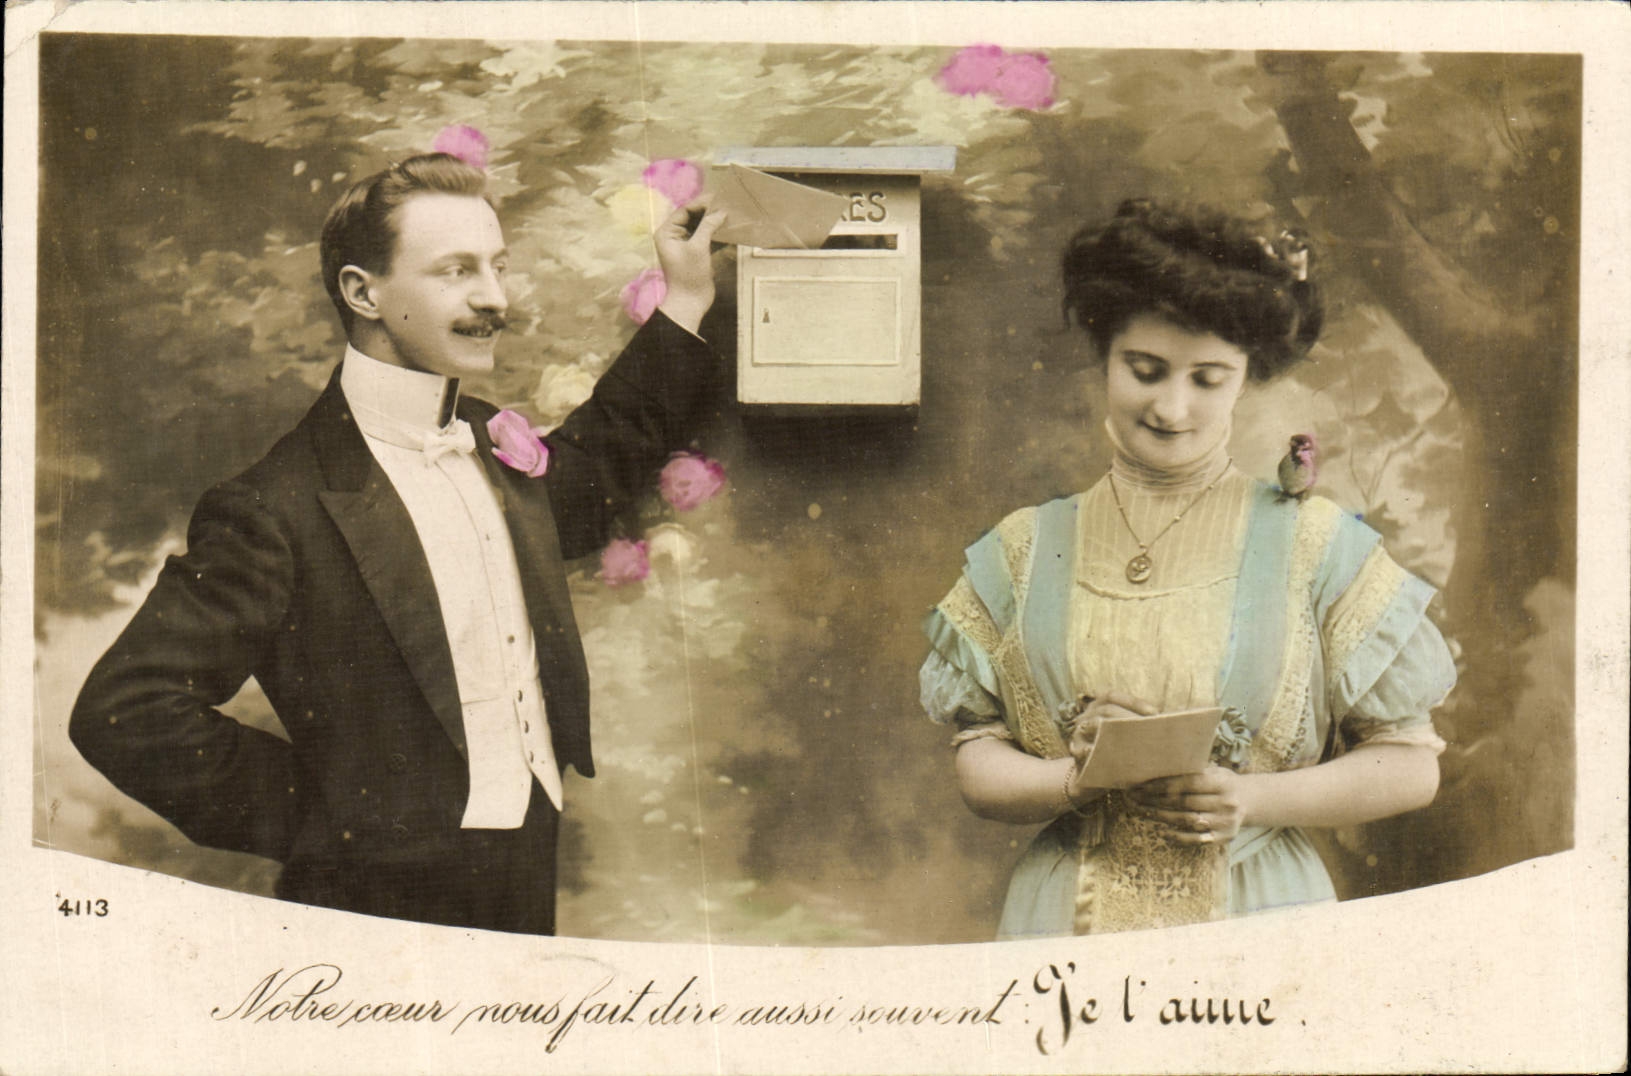 RES
4113
Notre cœur nous fait dire aussi souvent : Je t'aime.